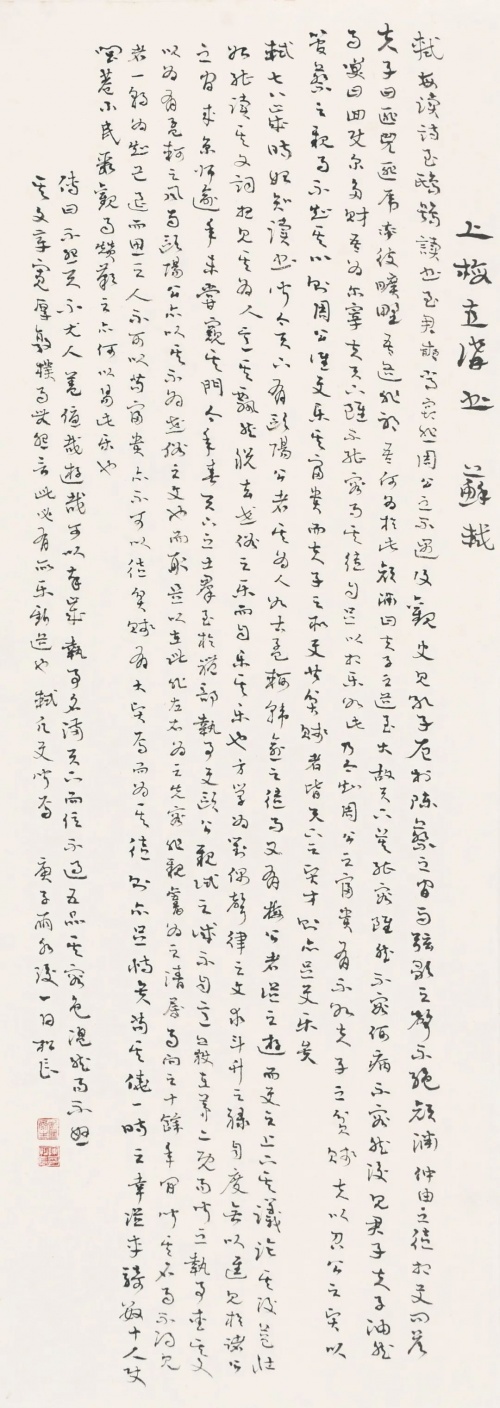 上梅直講書 蘇軾
軾每讀詩至鴟鴞讀書至君奭常竊悲周公之不遇及觀史見孔子厄於陳蔡之間而弦歌之聲不絕顏淵仲由之徒相與問答
夫子曰匪兕匪虎率彼曠野吾道非耶吾何為於此顏淵曰夫子之道至大故天下莫能容雖然不容何病不容然後見君子夫子油然
而笑曰回使爾多財吾為爾宰夫天下雖不能容而其徒自足以相樂如此乃今知周公之富貴有不如夫子之貧賤夫以召公之賢以
管蔡之親而不知其心則周公誰與樂其富貴而夫子之所與共貧賤者皆天下之賢才則亦足與樂矣
軾七八歲時始知讀書聞今天下有歐陽公者其為人如古孟軻韓愈之徒而又有梅公者從之遊而與之上下其議論其後益壯
始能讀其文詞想見其為人意其飄然脫去世俗之樂而自樂其樂也方學為對偶聲律之文求斗升之祿自度無以進見於諸公
之間來京師逾年未嘗窺其門今年春天下之士群至於禮部執事與歐公親試之誠不自意獲在第二既而聞之執事愛其文
以為有孟軻之風而歐陽公亦以其不為世俗之文也而取是以在此非左右為之先容非親舊為之請屬而向之十餘年間聞其名而不得見
者一朝為知己退而思之人不可以苟富貴亦不可以徒貧賤有大賢焉而為其徒則亦足恃矣苟其僥一時之幸從車騎數十人使
閭巷小民聚觀而贊歎之亦何以易此樂也
傳曰不怨天不尤人蓋優哉游哉可以卒歲執事名滿天下而位不過五品其容色溫然而不怒
其文章寬厚敦樸而無怨言此必有所樂乎斯道也軾願與聞焉 庚子雨水後一日松長